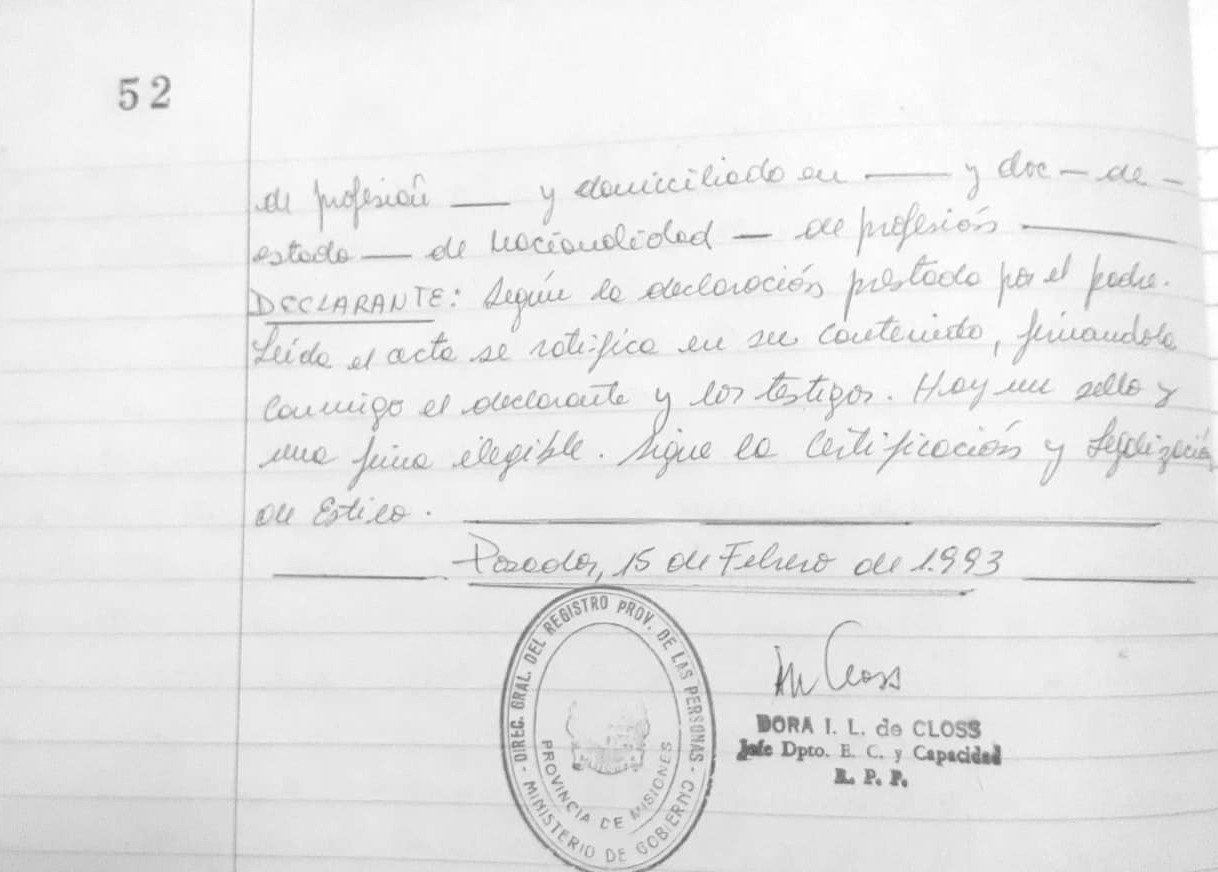 52
de profesión — y domiciliado en — y doc — de —
estado — de nacionalidad — de profesión —
DECLARANTE: Según la declaración prestada por el padre.
Leída el acta se ratifica en su contenido, firmandola
conmigo el declarante y los testigos. Hay un sello y
una firma elegible. Sigue la Certificación y Legalización
de Estilo. —
— Posadas, 15 de Febrero de 1.993 —
DIREC. GRAL. DEL REGISTRO PROV. DE LAS PERSONAS - MINISTERIO DE GOBIERNO -
PROVINCIA DE MISIONES
Closs
DORA I. L. de CLOSS
Jefe Dpto. E. C. y Capacidad
R. P. P.